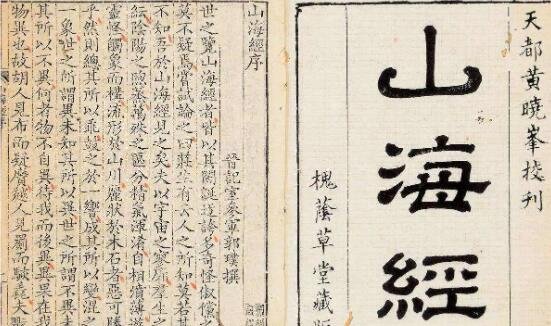 天都黃曉峯挍刊
山海經
槐蔭草堂藏
山海經序
晉記室參軍郭璞撰
世之覽山海經者皆以其閎誕迂誇多奇怪俶儻
莫不疑焉嘗試論之曰莊生有云人之所知莫若其
不知吾於山海經見之矣夫以宇宙之寥廓羣生之
紜陰陽之煦蒸萬殊之區分精氣渾淆自相濆薄遊
靈怪觸象而構流形於山川麗狀於木石者惡可勝
乎然則總其所以乖鼓之於一響成其所以變混之
一象世之所謂異未知其所以異世之所謂不異未
其所以不異何者物不自異待我而後異異果在我
物異也故胡人見布而疑黂越人見罽而駭毳夫